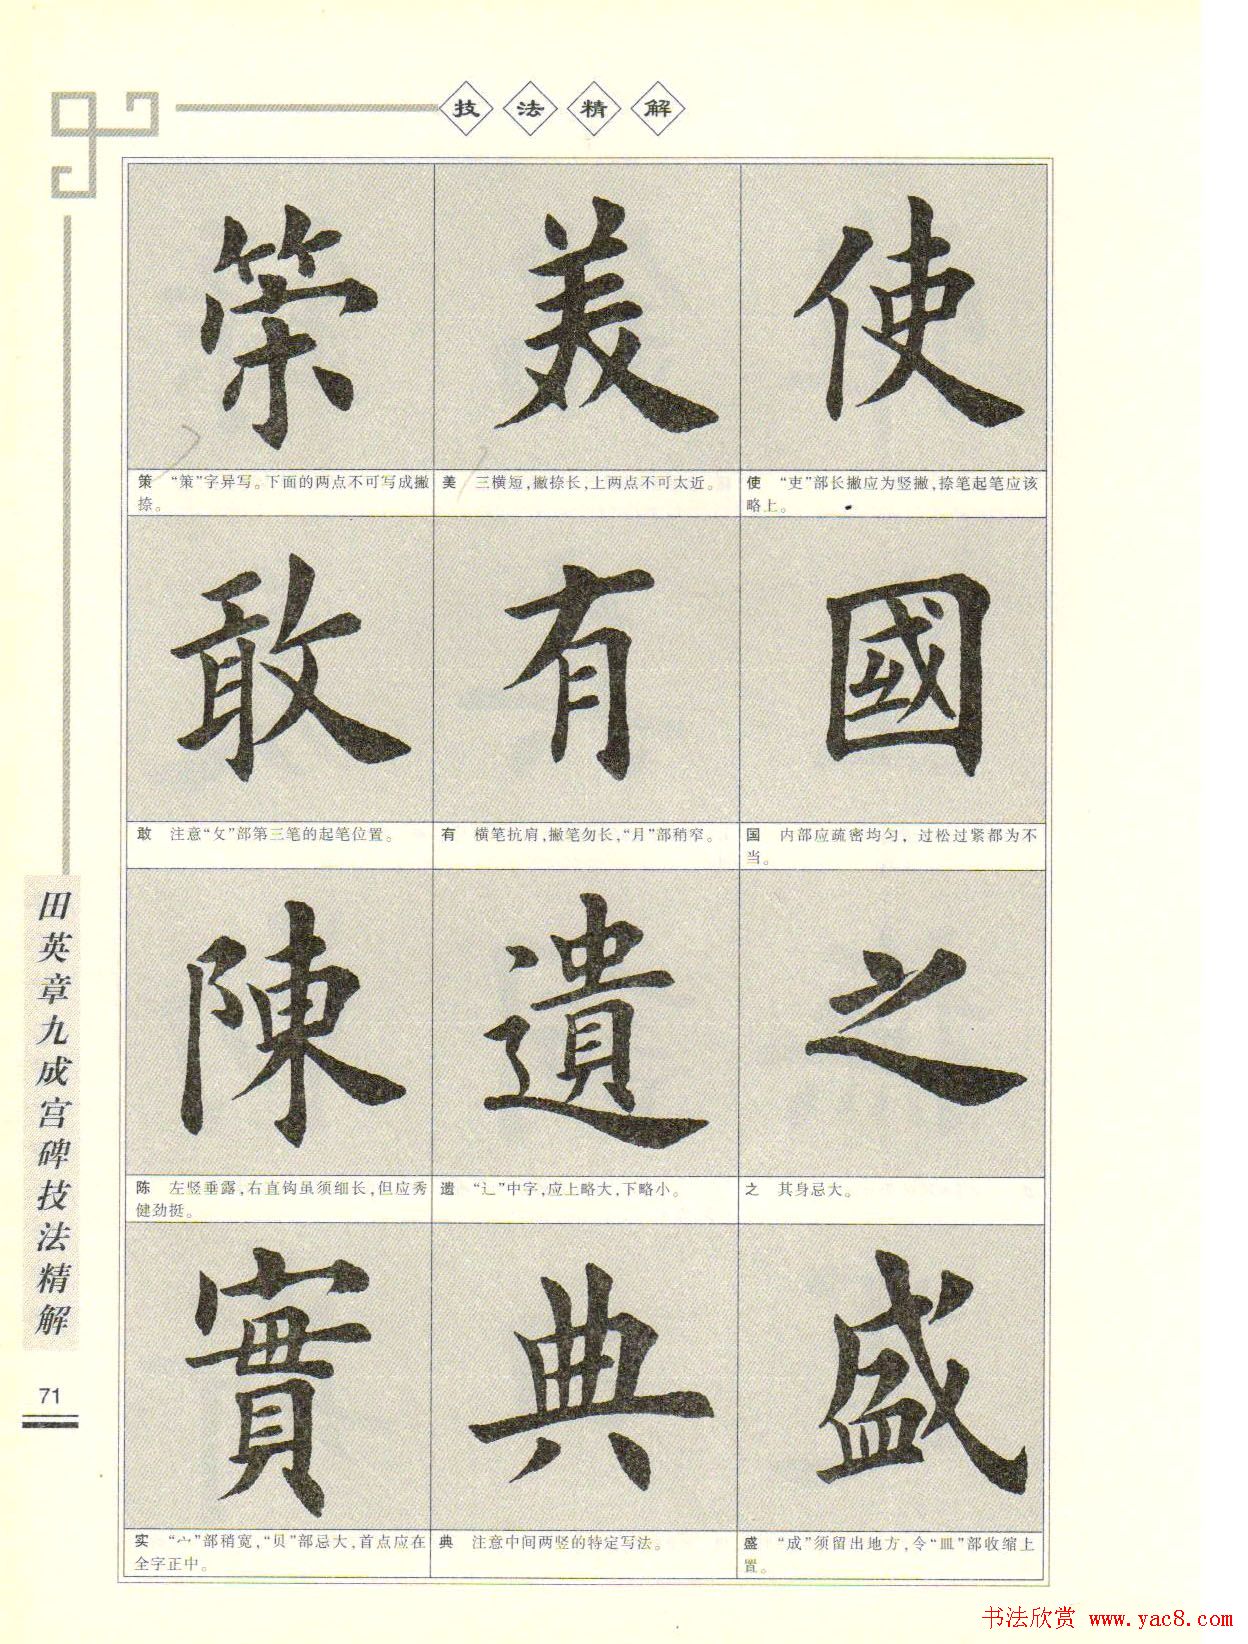 技法精解
策 美 使
策 “策”字异写。下面的两点不可写成撇
捺。
美 三横短，撇捺长，上两点不可太近。
使 “吏”部长撇应为竖撇，捺笔起笔应该
略上。
敢 有 國
敢 注意“攵”部第三笔的起笔位置。
有 横笔抗肩，撇笔勿长，“月”部稍窄。
国 内部应疏密均匀，过松过紧都为不
当。
陳 遺 之
陈 左竖垂露，右直钩虽须细长，但应秀
健劲挺。
遗 “辶”中字，应上略大，下略小。
之 其身忌大。
實 典 盛
实 “宀”部稍宽，“贝”部忌大，首点应在
全字正中。
典 注意中间两竖的特定写法。
盛 “成”须留出地方，令“皿”部收缩上
置。
田英章九成宫碑技法精解
71
书法欣赏 www.yac8.com